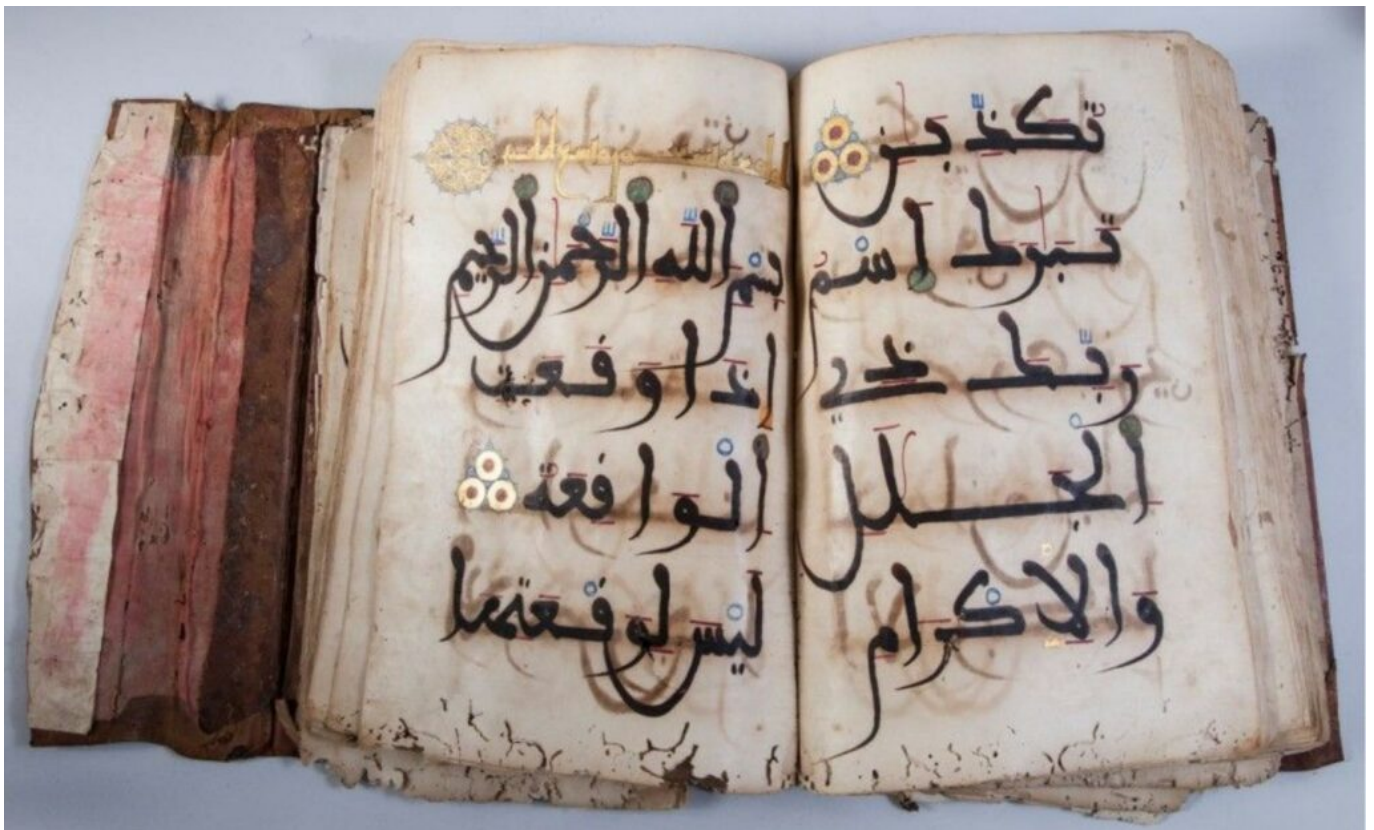 تُكَذِّبَٰنِ
تَبَٰرَكَ اَسْمُ
رَبِّكَ ذِي
اَلْجَلَٰلِ
وَالْإِكْرَامِ
بِسْمِ اَللَّهِ اَلرَّحْمَٰنِ اَلرَّحِيمِ
إِذَا وَقَعَتِ
اَلْوَاقِعَةُ
لَيْسَ لِوَقْعَتِهَا